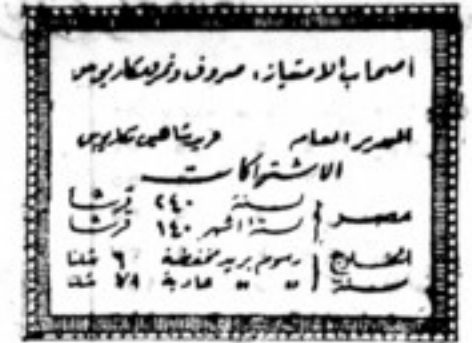 أصحاب الامتياز: صروف ونمر ومكاريوس
المدير العام فريد شاهين مكاريوس
الاشتراكات
مصر { لسنة ٢٤٠ قرشا
لستة اشهر ١٤٠ قرشا
الخارج { رسوم بريد مخفضة ٦ شلنا
سنة » » عادية ٧٨ شلنا